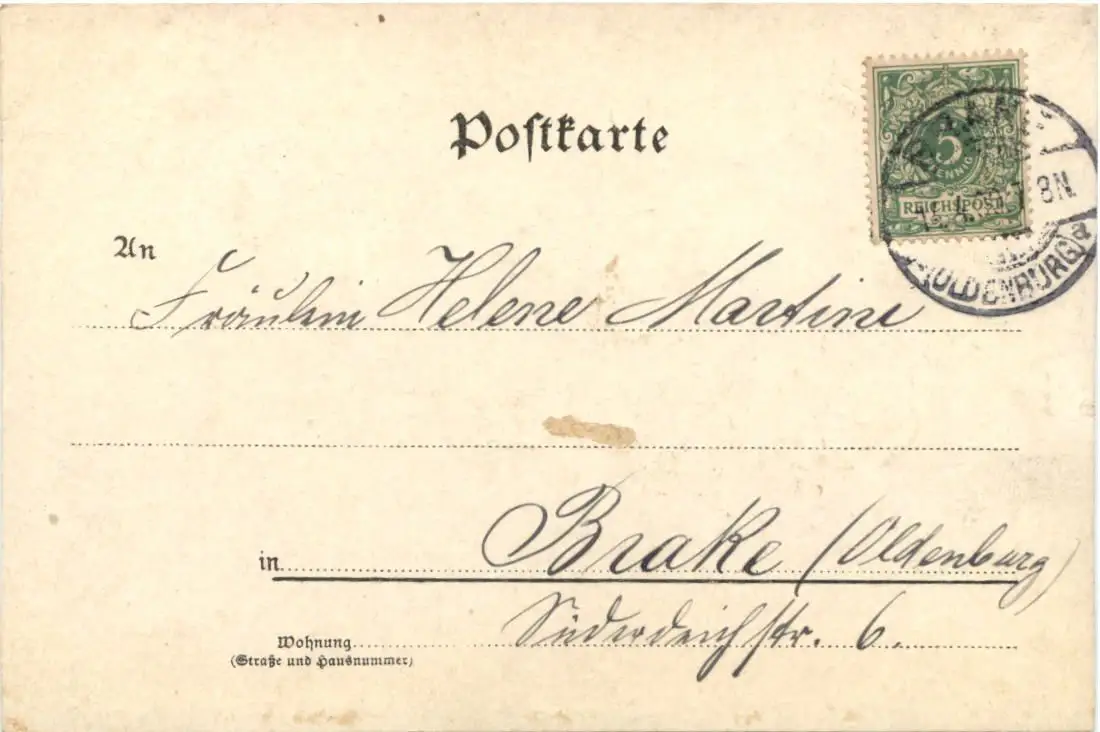 Postkarte
5
PFENNIG
REICHSPOST
8N.
(OLDENBURG) a
An
Fräulein Helene Martini
in Brake (Oldenburg)
Süderdeichstr. 6.
Wohnung
(Straße und Hausnummer)